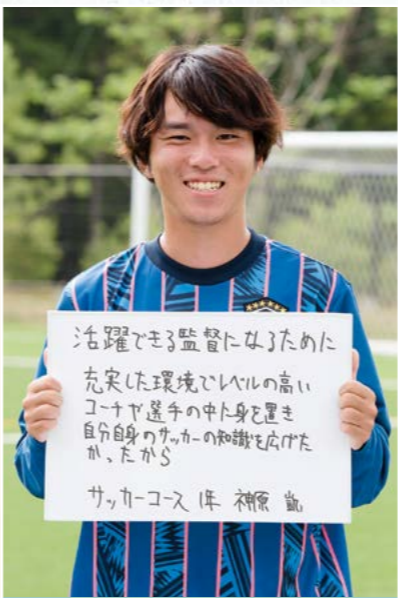 活躍できる監督になるために
充実した環境でレベルの高い
コーチや選手の中に身を置き
自分自身のサッカーの知識を広げた
かったから
サッカーコース 1年 神原 凱